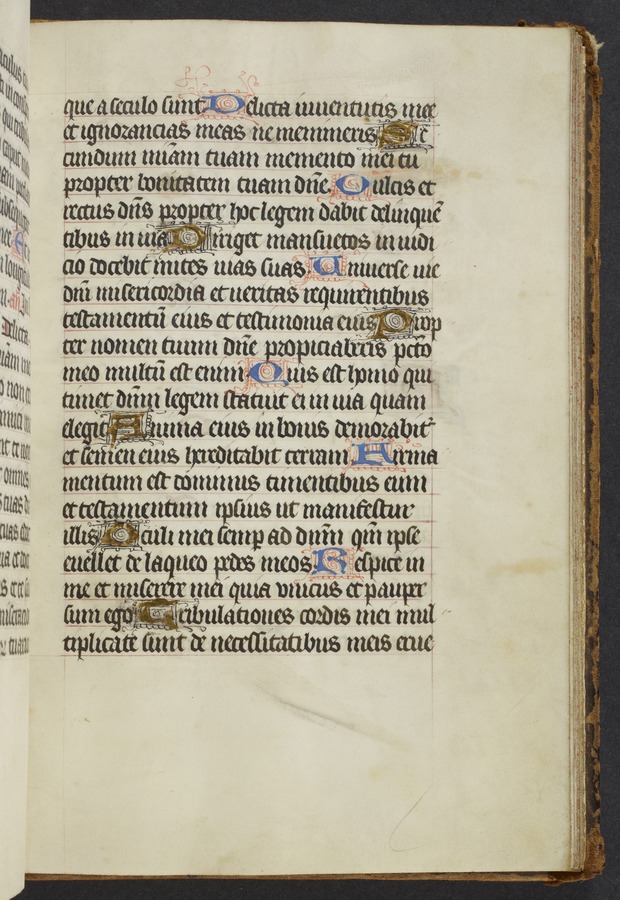 que a seculo sunt Delicta iuuentutis mee
et ignorancias meas ne memineris Se
cundum miām tuam memento mei tu
propter bonitatem tuam dn̄e Dulcis et
rectus dn̄s propter hoc legem dabit delinquē
tibus in uia Diriget mansuetos in iudi
cio docebit mites uias suas Uniuerse uie
dn̄i misericordia et ueritas requirentibus
testamentū eius et testimonia eius Prop
ter nomen tuum dn̄e propiciaberis pcto
meo multū est enim Quis est homo qui
timet dn̄m legem statuit ei in uia quam
elegit Anima eius in bonis demorabit᷑
et semen eius hereditabit terram Firma
mentum est dominus timentibus eum
et testamentum ipsius ut manifestur
illis Oculi mei semp ad dn̄m qm̄ ipse
euellet de laqueo pedes meos Respice in
me et miserere mei quia vnicus et paupr
sum ego Tribulationes cordis mei mul
tiplicate sunt de necessitatibus meis erue